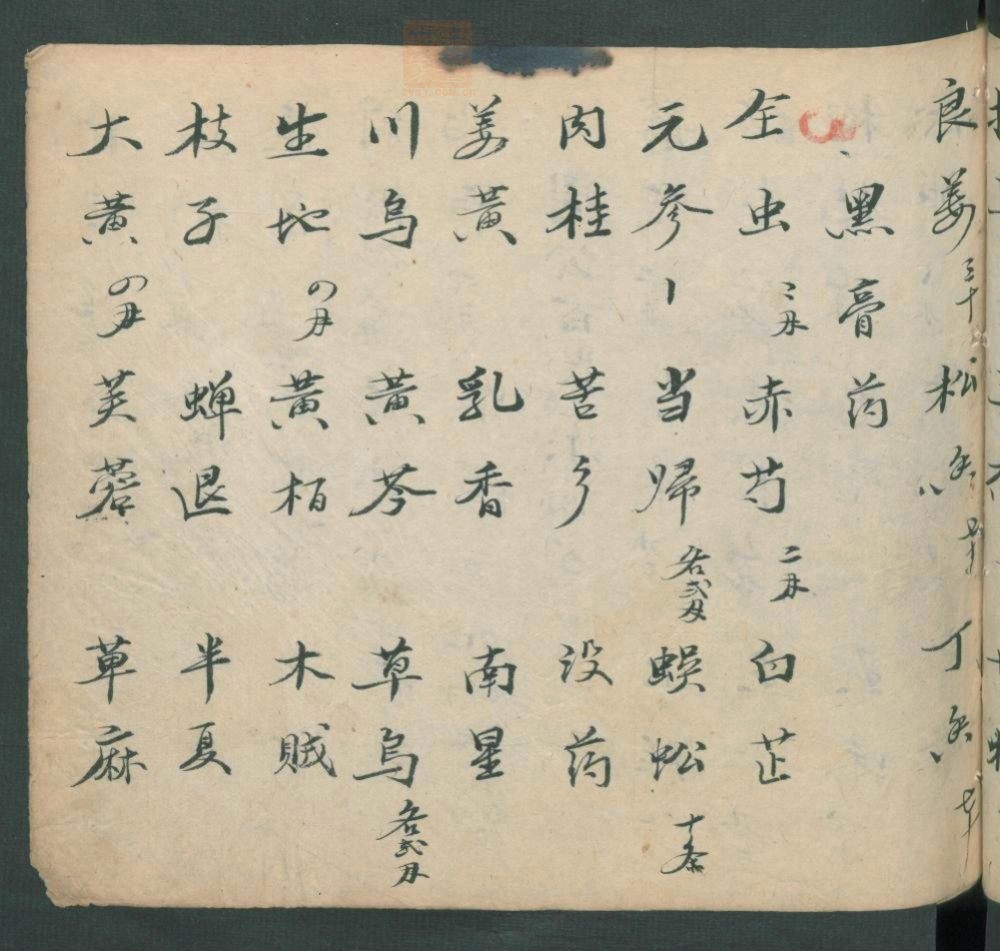 良姜 三十 松香 丁香
黑膏药
全虫 二両 赤芍 二両 白芷
元参 当归 各弍両 蜈蚣 十条
肉桂 苦参 没药
姜黄 乳香 南星
川乌 黄芩 草乌 各弍両
生地 四両 黄柏 木贼
枝子 蝉退 半夏
大黄 四両 芙蓉 草麻